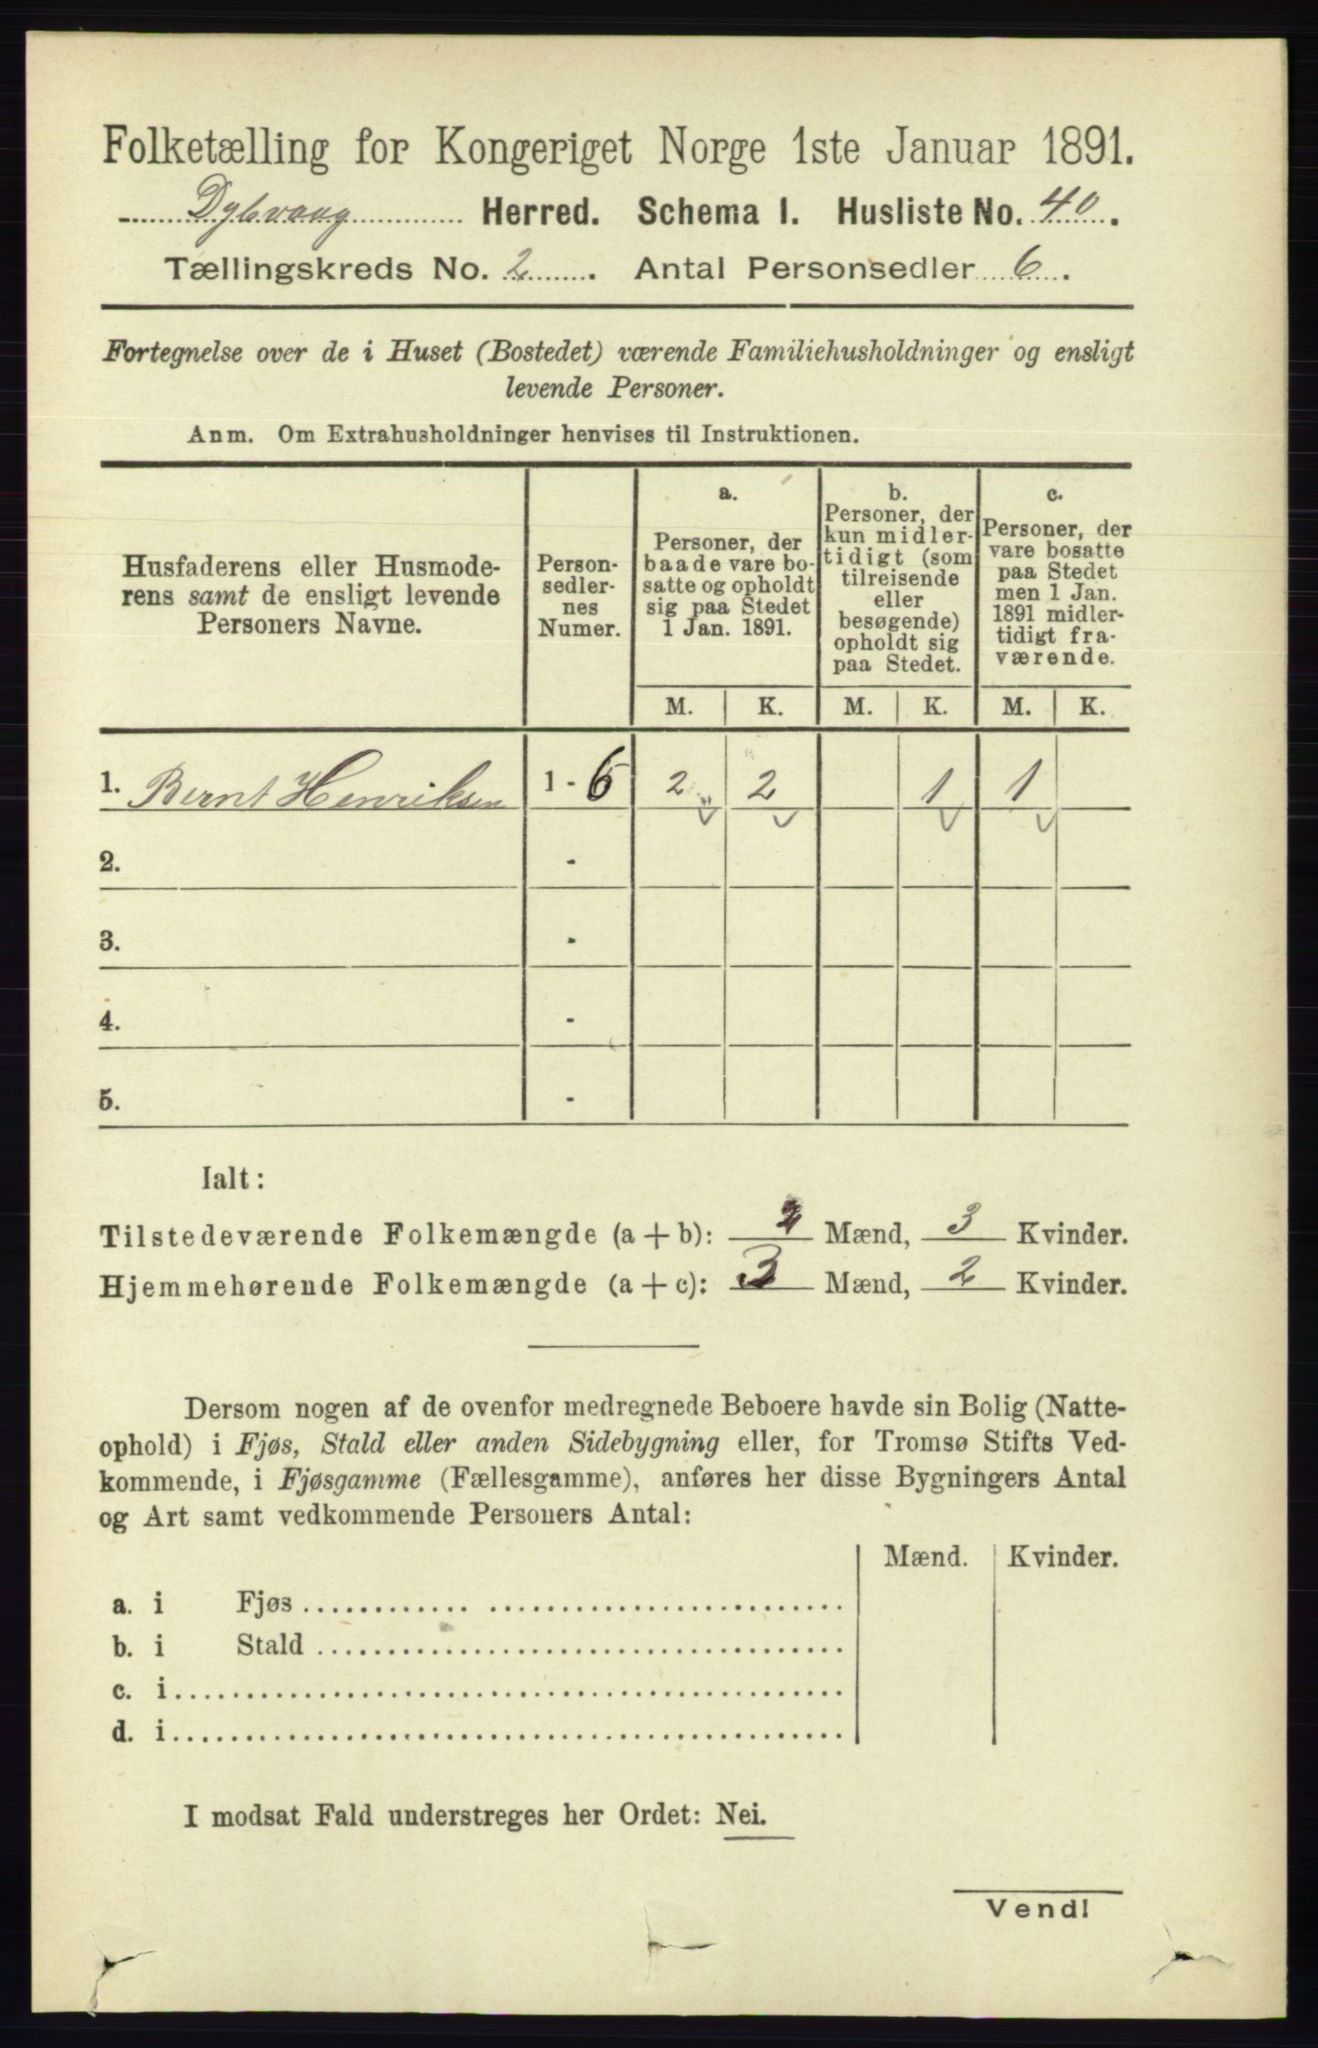 Folketælling for Kongeriget Norge 1ste Januar 1891.
Dybvaag Herred. Schema I. Husliste No. 40.
Tællingskreds No. 2. Antal Personsedler 6.
Fortegnelse over de i Huset (Bostedet) værende Familiehusholdninger og ensligt
levende Personer.
Anm. Om Extrahusholdninger henvises til Instruktionen.
Husfaderens eller Husmode-
rens samt de ensligt levende
Personers Navne.
Person-
sedler-
nes
Numer.
a.
Personer, der
baade vare bo-
satte og opholdt
sig paa Stedet
1 Jan. 1891.
b.
Personer, der
kun midler-
tidigt (som
tilreisende
eller
besøgende)
opholdt sig
paa Stedet.
c.
Personer, der
vare bosatte
paa Stedet
men 1 Jan.
1891 midler-
tidigt fra-
værende.
M. K. M. K. M. K.
1. Bernt Henriksen 1 - 6 2 2 1 1
2. -
3. -
4. -
5. -
Ialt:
Tilstedeværende Folkemængde (a + b): 2 Mænd, 3 Kvinder.
Hjemmehørende Folkemængde (a + c): 3 Mænd, 2 Kvinder.
Dersom nogen af de ovenfor medregnede Beboere havde sin Bolig (Natte-
ophold) i Fjøs, Stald eller anden Sidebygning eller, for Tromsø Stifts Ved-
kommende, i Fjøsgamme (Fællesgamme), anføres her disse Bygningers Antal
og Art samt vedkommende Personers Antal:
Mænd. Kvinder.
a. i Fjøs
b. i Stald
c. i
d. i
I modsat Fald understreges her Ordet: Nei.
Vend!